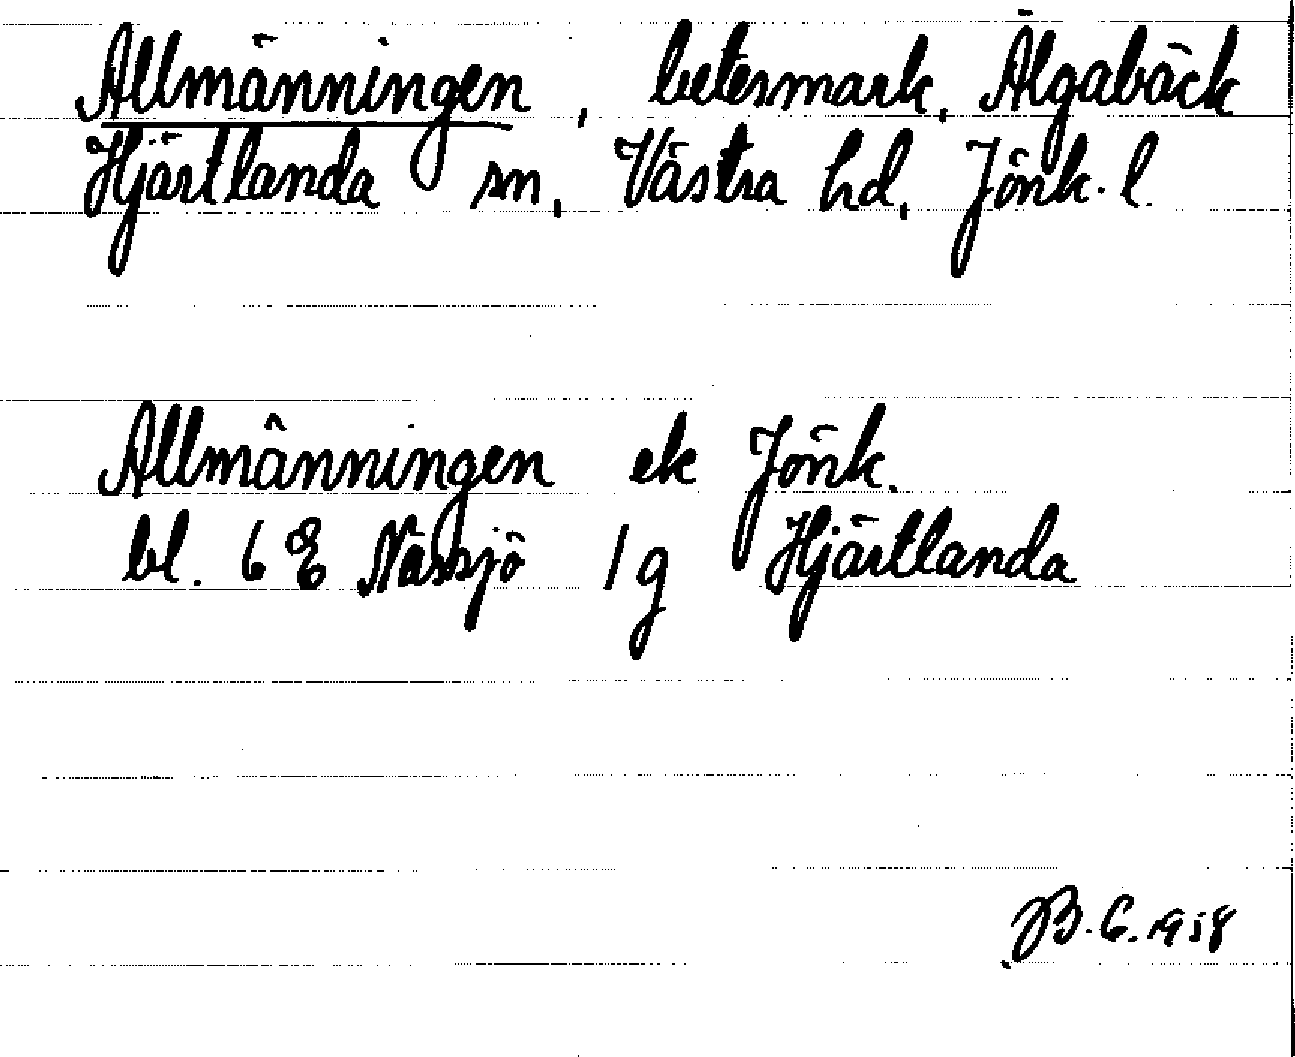 Allmänningen, betesmark, Älgabäck
Hjärtlanda sn, Västra hd, Jönk. l.
Allmänningen ek Jönk.
bl. 6 E Nässjö 1 g Hjärtlanda
B. C. 1958